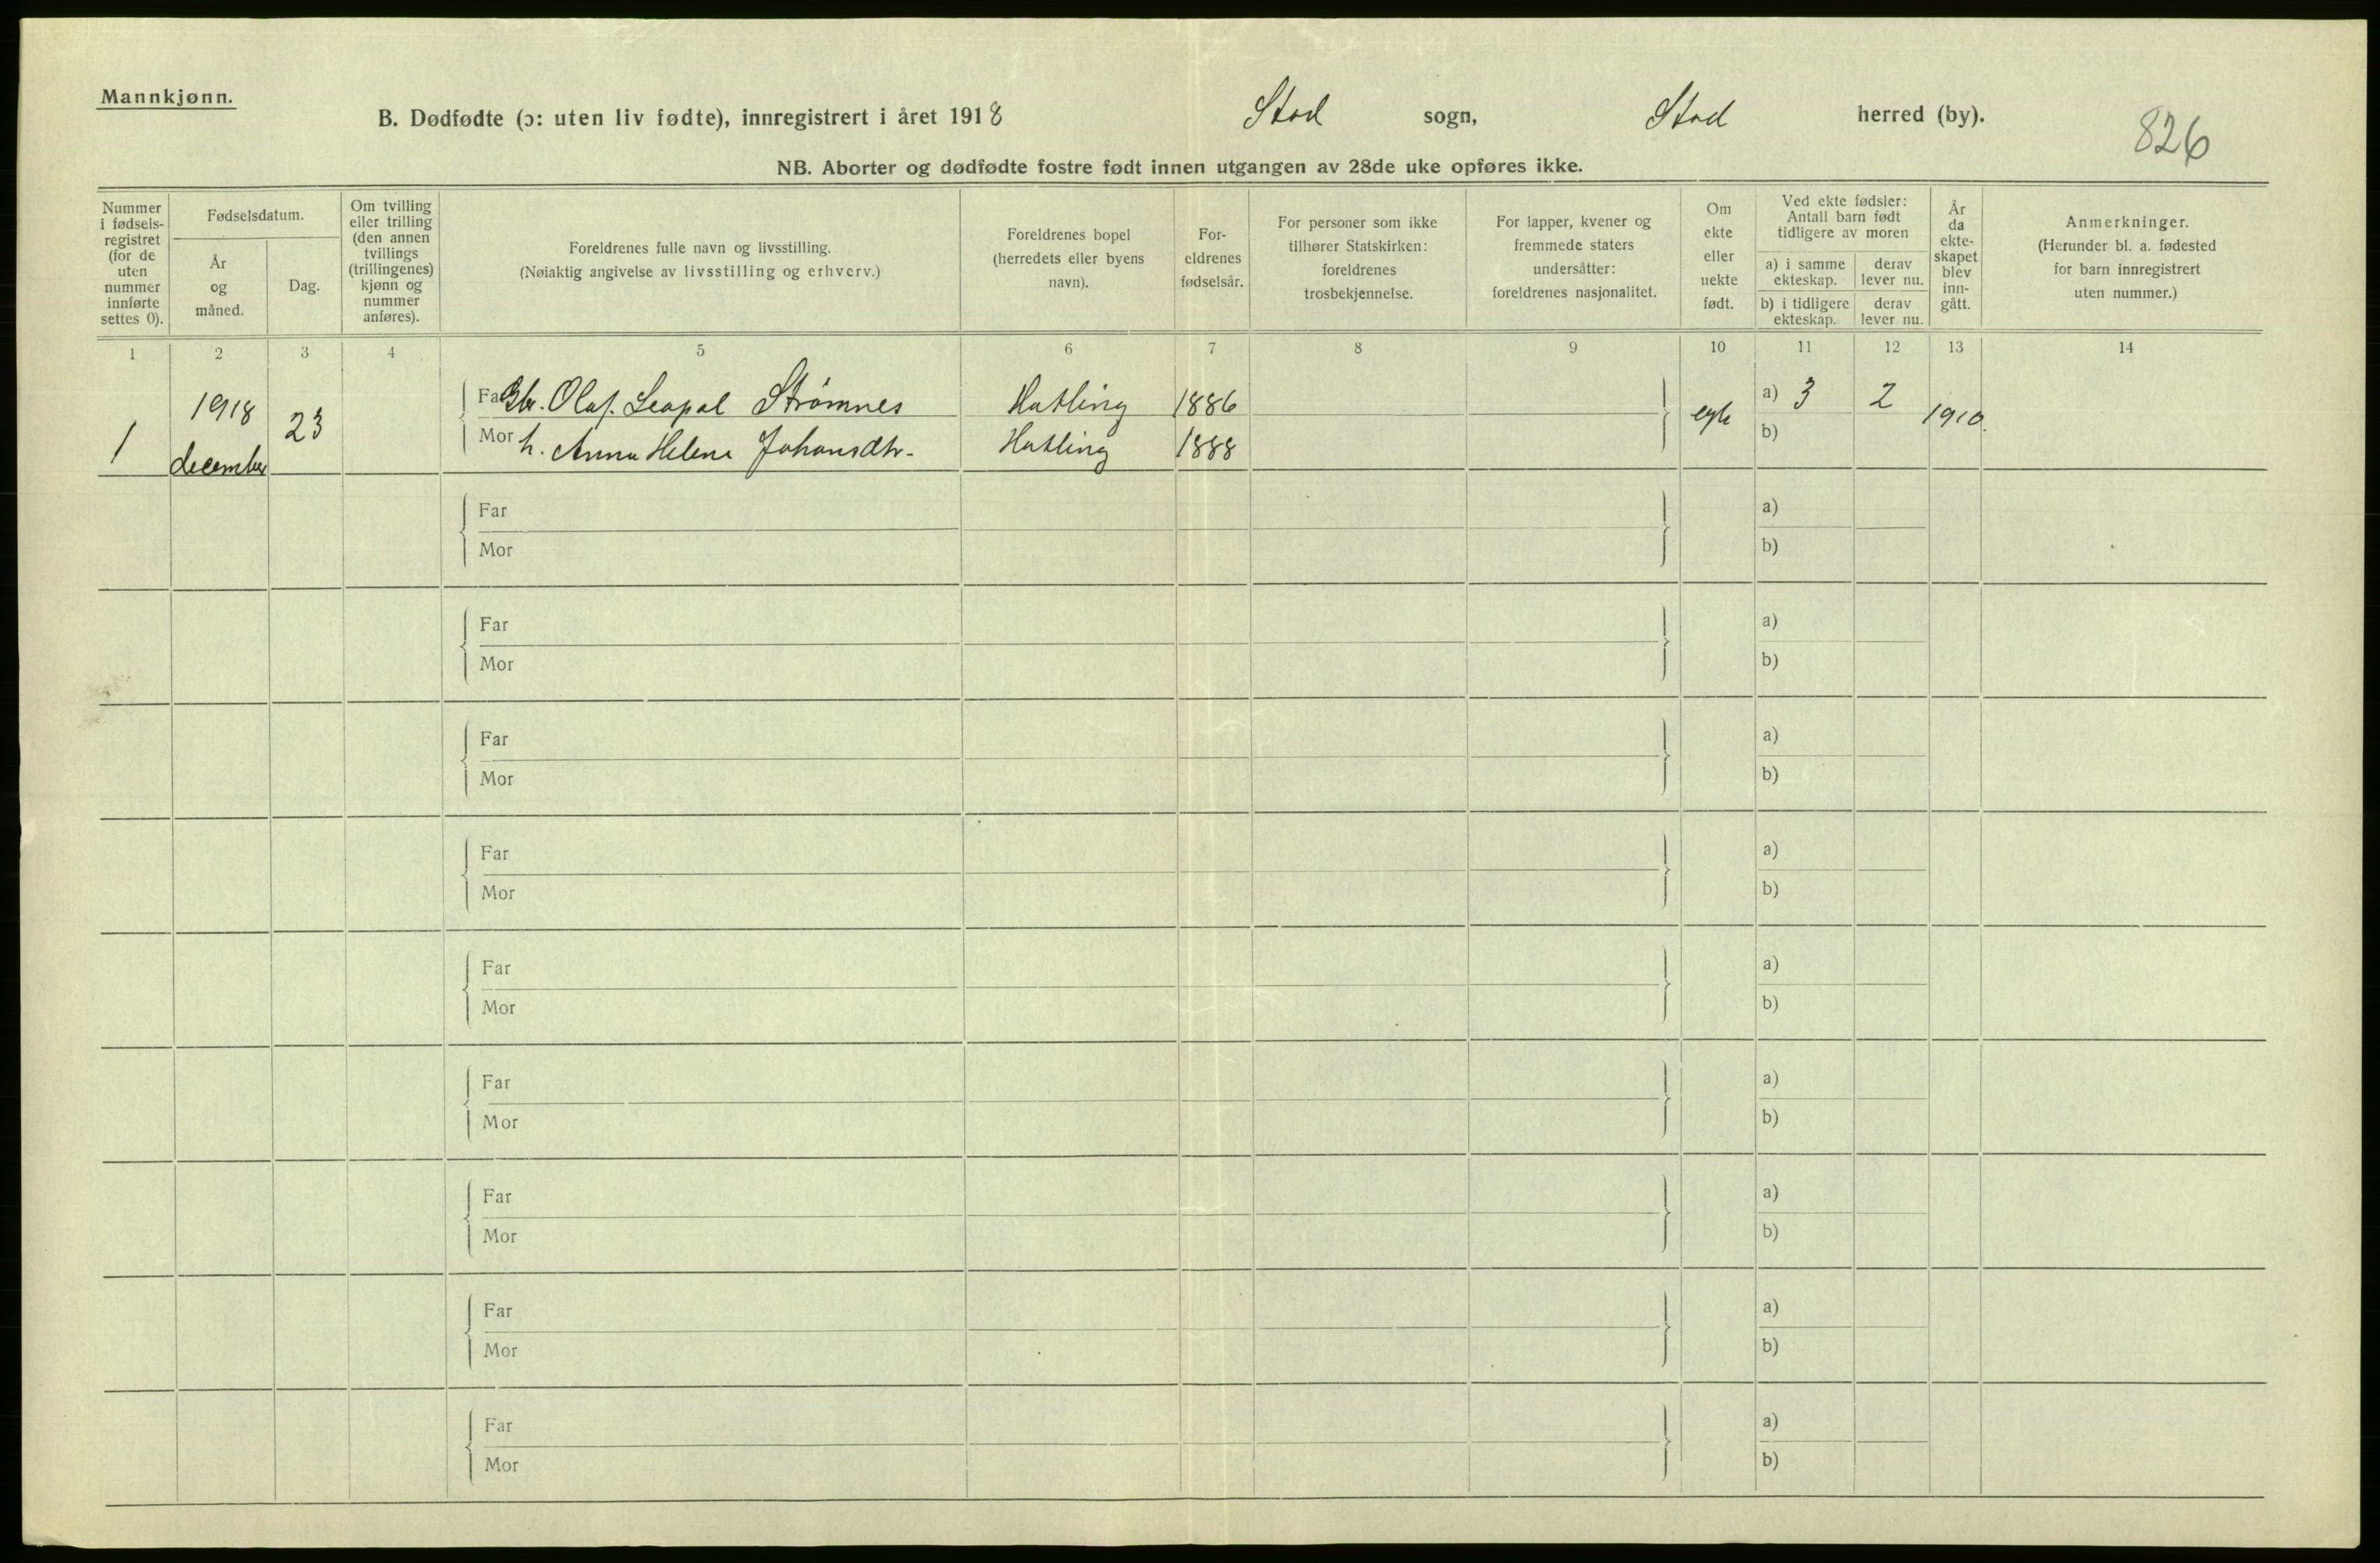 Mannkjønn.
B. Dødfødte (ɔ: uten liv fødte), innregistrert i året 1918 Stod sogn, Stod herred (by).
826
NB. Aborter og dødfødte fostre født innen utgangen av 28de uke opføres ikke.
Nummer
i fødsels-
registret
(for de
uten
nummer
innførte
settes 0).
Fødselsdatum.
År
og
måned.
Dag.
Om tvilling
eller trilling
(den annen
tvillings
(trillingenes)
kjønn og
nummer
anføres).
Foreldrenes fulle navn og livsstilling.
(Nøiaktig angivelse av livsstilling og erhverv.)
Foreldrenes bopel
(herredets eller byens
navn).
For-
eldrenes
fødselsår.
For personer som ikke
tilhører Statskirken:
foreldrenes
trosbekjennelse.
For lapper, kvener og
fremmede staters
undersåtter:
foreldrenes nasjonalitet.
Om
ekte
eller
uekte
født.
Ved ekte fødsler:
Antall barn født
tidligere av moren
a) i samme
ekteskap.
derav
lever nu.
b) i tidligere
ekteskap.
derav
lever nu.
År
da
ekte-
skapet
blev
inn-
gått.
Anmerkninger.
(Herunder bl. a. fødested
for barn innregistrert
uten nummer.)
1 2 3 4 5 6 7 8 9 10 11 12 13 14
1 1918 december 23
Far Gbr. Olaf. Leopol Strømnes Hatling 1886 a) 3 2 1910.
Mor h. Anna Helene Johansdtr. Hatling 1888 b)
Far a)
Mor b)
Far a)
Mor b)
Far a)
Mor b)
Far a)
Mor b)
Far a)
Mor b)
Far a)
Mor b)
Far a)
Mor b)
Far a)
Mor b)
Far a)
Mor b)